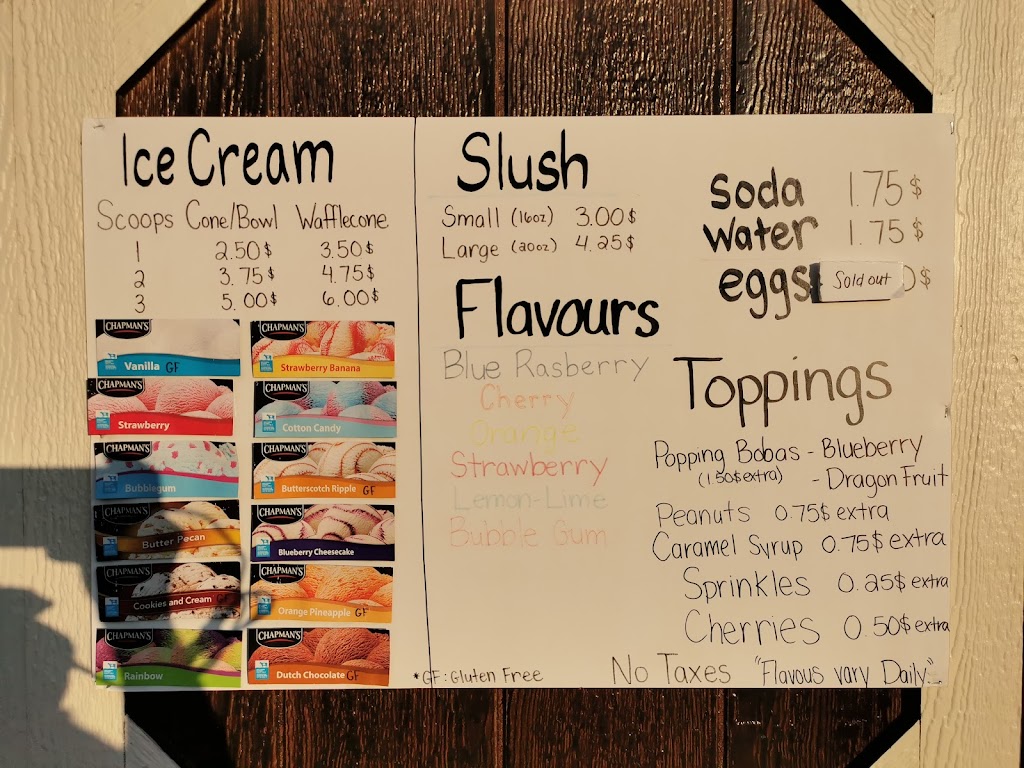 Ice Cream
Scoops Cone/Bowl Wafflecone
1 2.50$ 3.50$
2 3.75$ 4.75$
3 5.00$ 6.00$
CHAPMAN'S
Vanilla GF
CHAPMAN'S
Strawberry Banana
CHAPMAN'S
Strawberry
CHAPMAN'S
Cotton Candy
CHAPMAN'S
Bubblegum
CHAPMAN'S
Butterscotch Ripple GF
CHAPMAN'S
Butter Pecan
CHAPMAN'S
Blueberry Cheesecake
CHAPMAN'S
Cookies and Cream
CHAPMAN'S
Orange Pineapple GF
CHAPMAN'S
Rainbow
CHAPMAN'S
Dutch Chocolate GF
Slush
Small (16oz) 3.00$
Large (20oz) 4.25$
Flavours
Blue Rasberry
Cherry
Orange
Strawberry
Lemon-Lime
Bubble Gum
*GF: Gluten Free
Soda 1.75$
Water 1.75$
eggs Sold out $
Toppings
Popping Bobas - Blueberry
(1.50$ extra) - Dragon Fruit
Peanuts 0.75$ extra
Caramel Syrup 0.75$ extra
Sprinkles 0.25$ extra
Cherries 0.50$ extra
No Taxes "Flavous vary Daily."